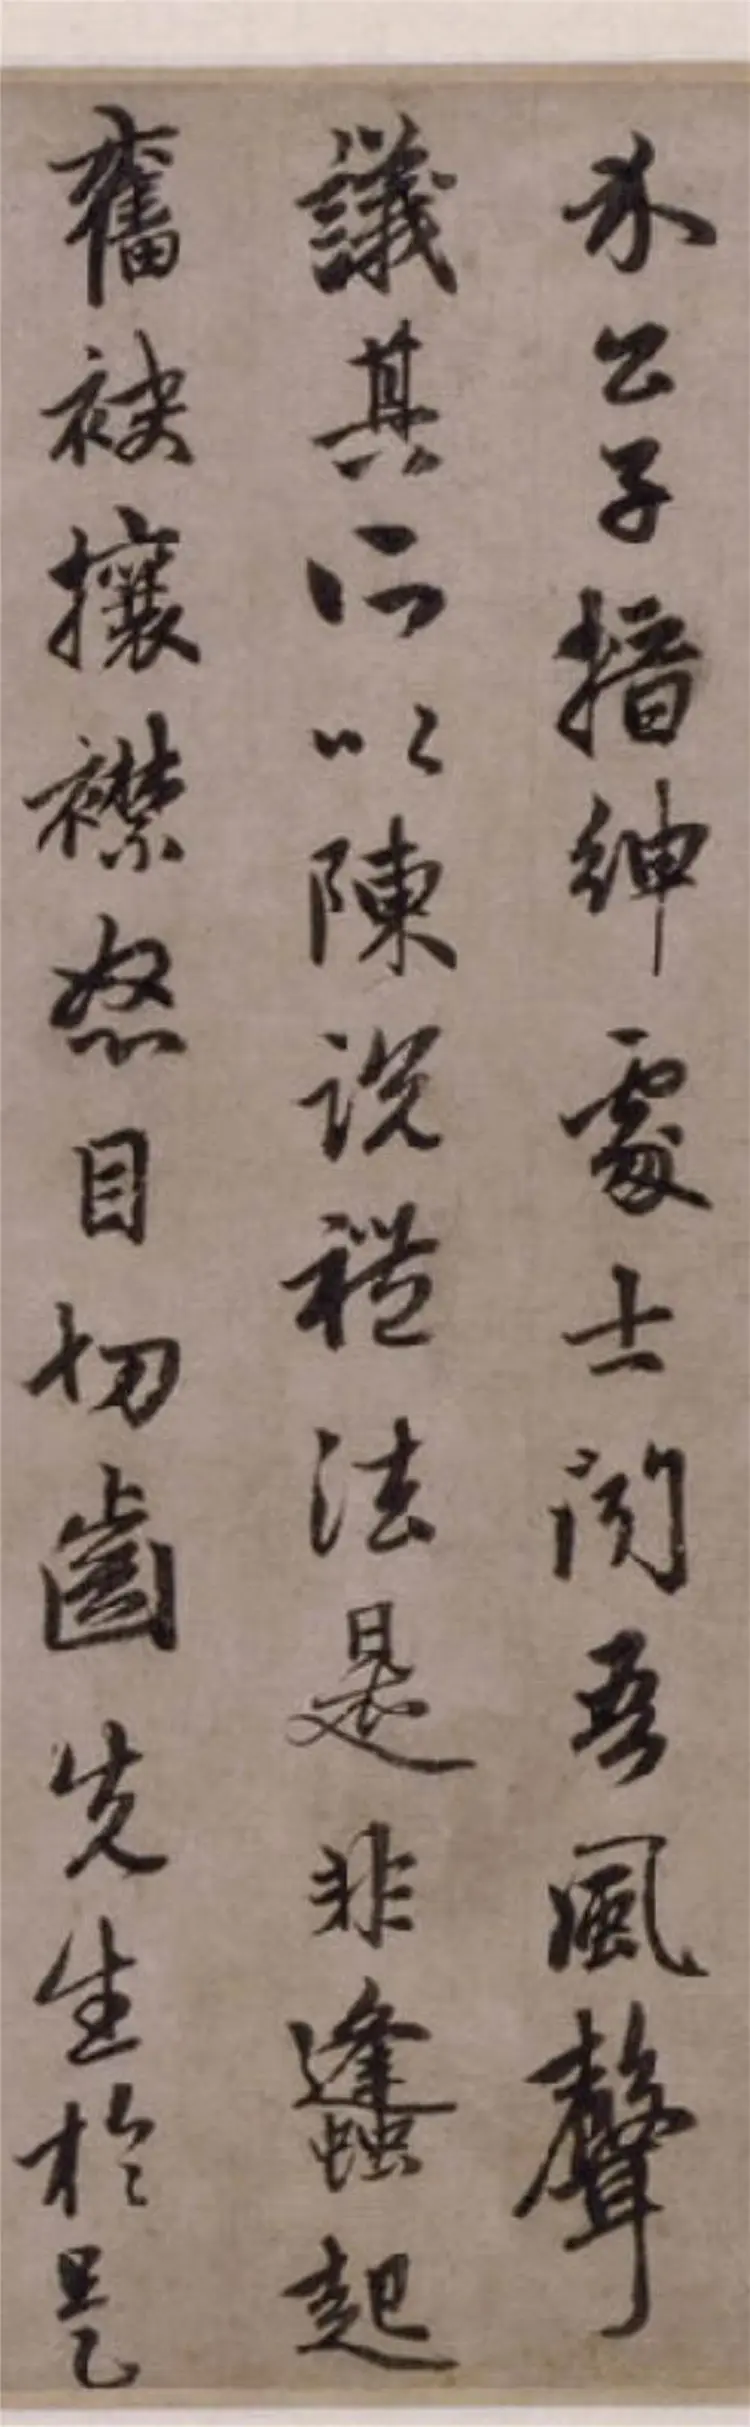 介公子搢紳處士聞吾風聲
議其所以陳說禮法是非蠭起
奮袂攘襟怒目切齒先生於是